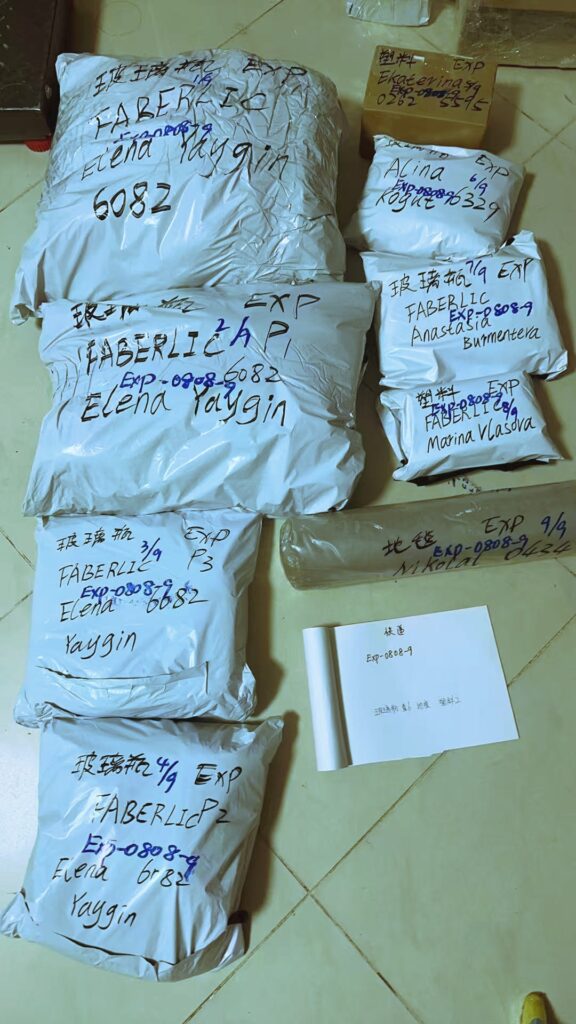 玻璃瓶 EXP
1/9
FABERLIC
Exp-0808-9
Elena Yaygin
6082
玻璃瓶 EXP
FABERLIC 2/9 P1
Exp-0808-9 6082
Elena Yaygin
玻璃瓶 3/9 EXP
FABERLIC P3
Exp-0808-9
Elena 6082
Yaygin
玻璃瓶 4/9 EXP
FABERLIC P2
Exp-0808-9
Elena 6082
Yaygin
塑料 EXP
Ekaterina
Exp-0808-9
0262 5595
EXP
Alina 6/9
Exp-0808-9
Kogut 6329
玻璃瓶 7/9 EXP
FABERLIC
Exp-0808-9
Anastasia
Burmentera
塑料 EXP
Exp-0808-9
FABERLIC 8/9
Marina Vlasova
地毯 EXP 9/9
Exp-0808-9
Nikolai 0424
快递
Exp-0808-9
玻璃瓶 地毯 塑料2